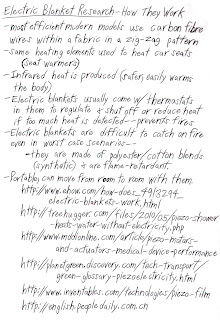 Electric Blanket Research - How They Work
- most efficient modern models use carbon fibre
wires within a fabric in a zig-zag pattern
- same heating elements used to heat car seats
(seat warmers)
- Infrared heat is produced (safer, easily warms
the body)
- Electric blankets usually come w/ thermostats
in them to regulate + shut off or reduce heat
if too much heat is detected -- prevents fires
- Electric blankets are difficult to catch on fire
even in worst case scenarios --
→ they are made of polyester/cotton blends
(synthetic) + are flame-retardant
- Portable, can move from room to room with them.
http://www.ehow.com/how-does_4913294_
electric-blankets-work.html
http://treehugger.com/files/2010/05/piezo-shower
-heats-water-without-electricity.php
www.mddionline.com/article/piezo-motors-
and-actuators-medical-device-performance
http://planetgreen.discovery.com/tech-transport/
green-glossary-piezoelectricity.html
http://www.inventables.com/technologies/piezo-film
http://english.peopledaily.com.cn